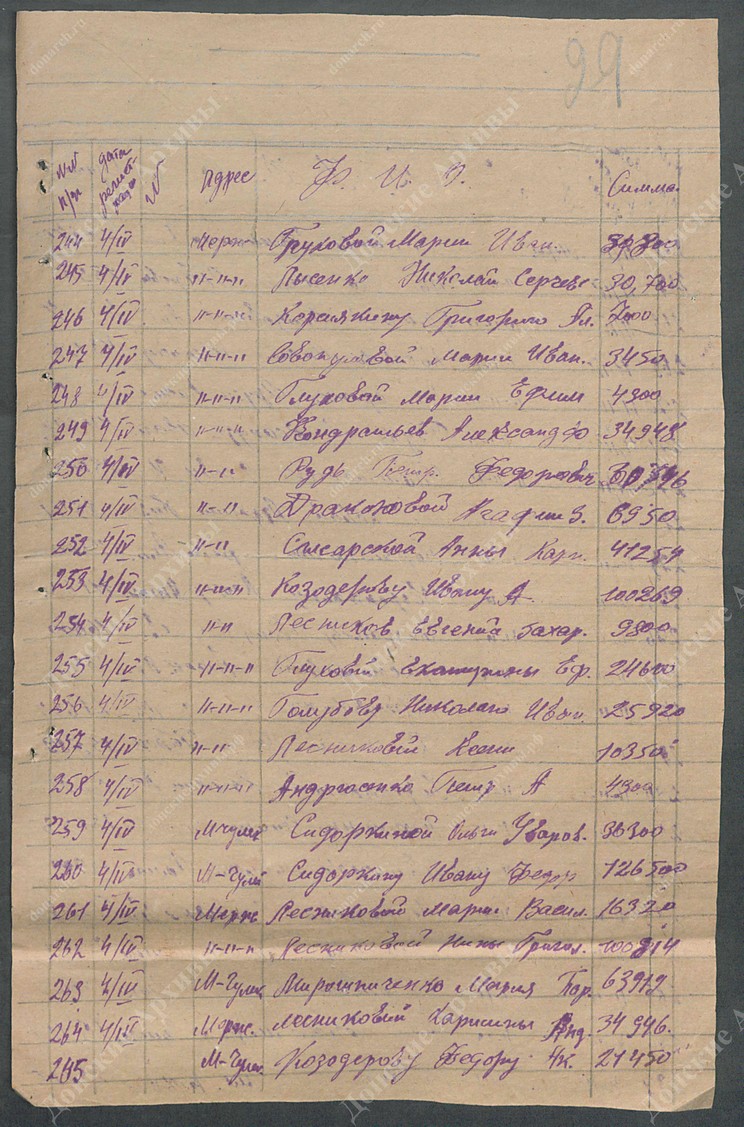 99
№№ п/п дата регист- № Адрес Ф. И. О. Сумма
244 4/IV Глуховой Марии Иван.
245 4/IV "-"-" Лысенко Николай Сергеев 30,700
246 4/IV "-"-" Григорию Ал. 7000
247 4/IV "-"-" Марии Иван. 3450
248 4/IV "-"-" Глуховой Марии Ефим 4300
249 4/IV "-"-" Кондратьев Александр 34948
250 4/IV "-" Рудь Петр. Федорович
251 4/IV "-" 6950
252 4/IV "-" Слесарской Анны Карп. 41254
253 4/IV "-"-" Козодерову Ивану А. 100269
254 4/IV "-" Лесников Евгений Захар. 9800
255 4/IV "-"-" Глуховой Екатерины Еф. 24600
256 4/IV "-"-" Голубову Николаю Иван. 25920
257 4/IV "-" Лесниковой Ксении 10350
258 4/IV "-"-" Андрющенко Петр А 4300
259 4/IV Сидоркиной Ольги Уваров. 36300
260 4/IV М-Чулек Сидоркину Ивану Федор 126500
261 4/IV Мерж. Лесниковой Марии Васил. 16320
262 4/IV "-"-" Лесниковой Нины Григол. 100214
263 4/IV М-Чулек Мирошниченко Мария Бор. 63919
264 4/IV Мерж. Лесниковой Анд. 34946.
265 М-Чулек Козодерову Федору 21450